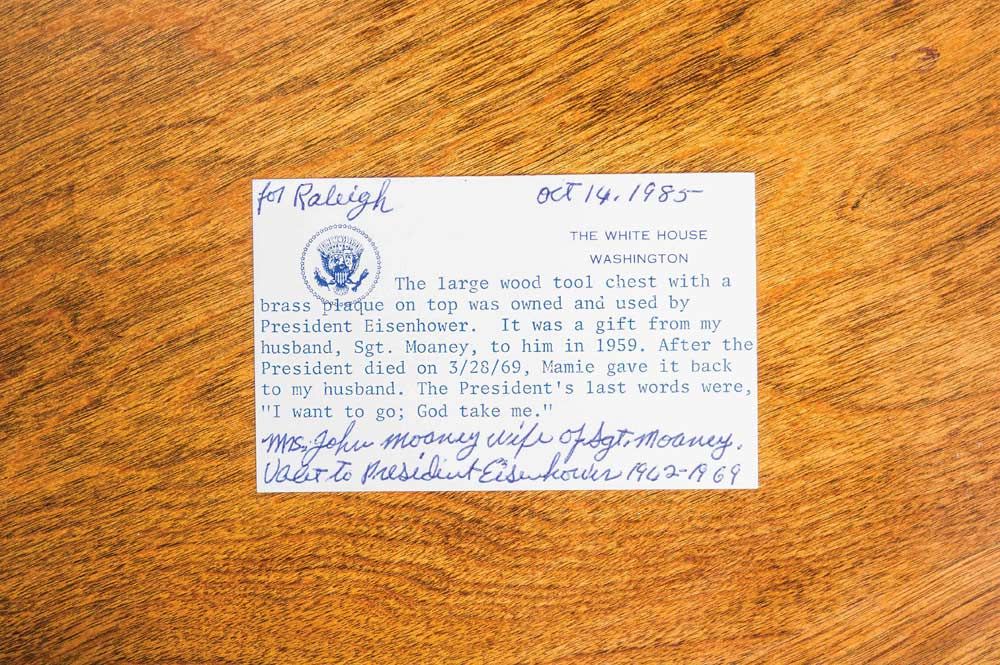 for Raleigh
Oct 14, 1985
THE WHITE HOUSE
WASHINGTON
The large wood tool chest with a
brass plaque on top was owned and used by
President Eisenhower. It was a gift from my
husband, Sgt. Moaney, to him in 1959. After the
President died on 3/28/69, Mamie gave it back
to my husband. The President's last words were,
"I want to go; God take me."
Mrs. John Moaney wife of Sgt. Moaney.
Valet to President Eisenhower 1942-1969